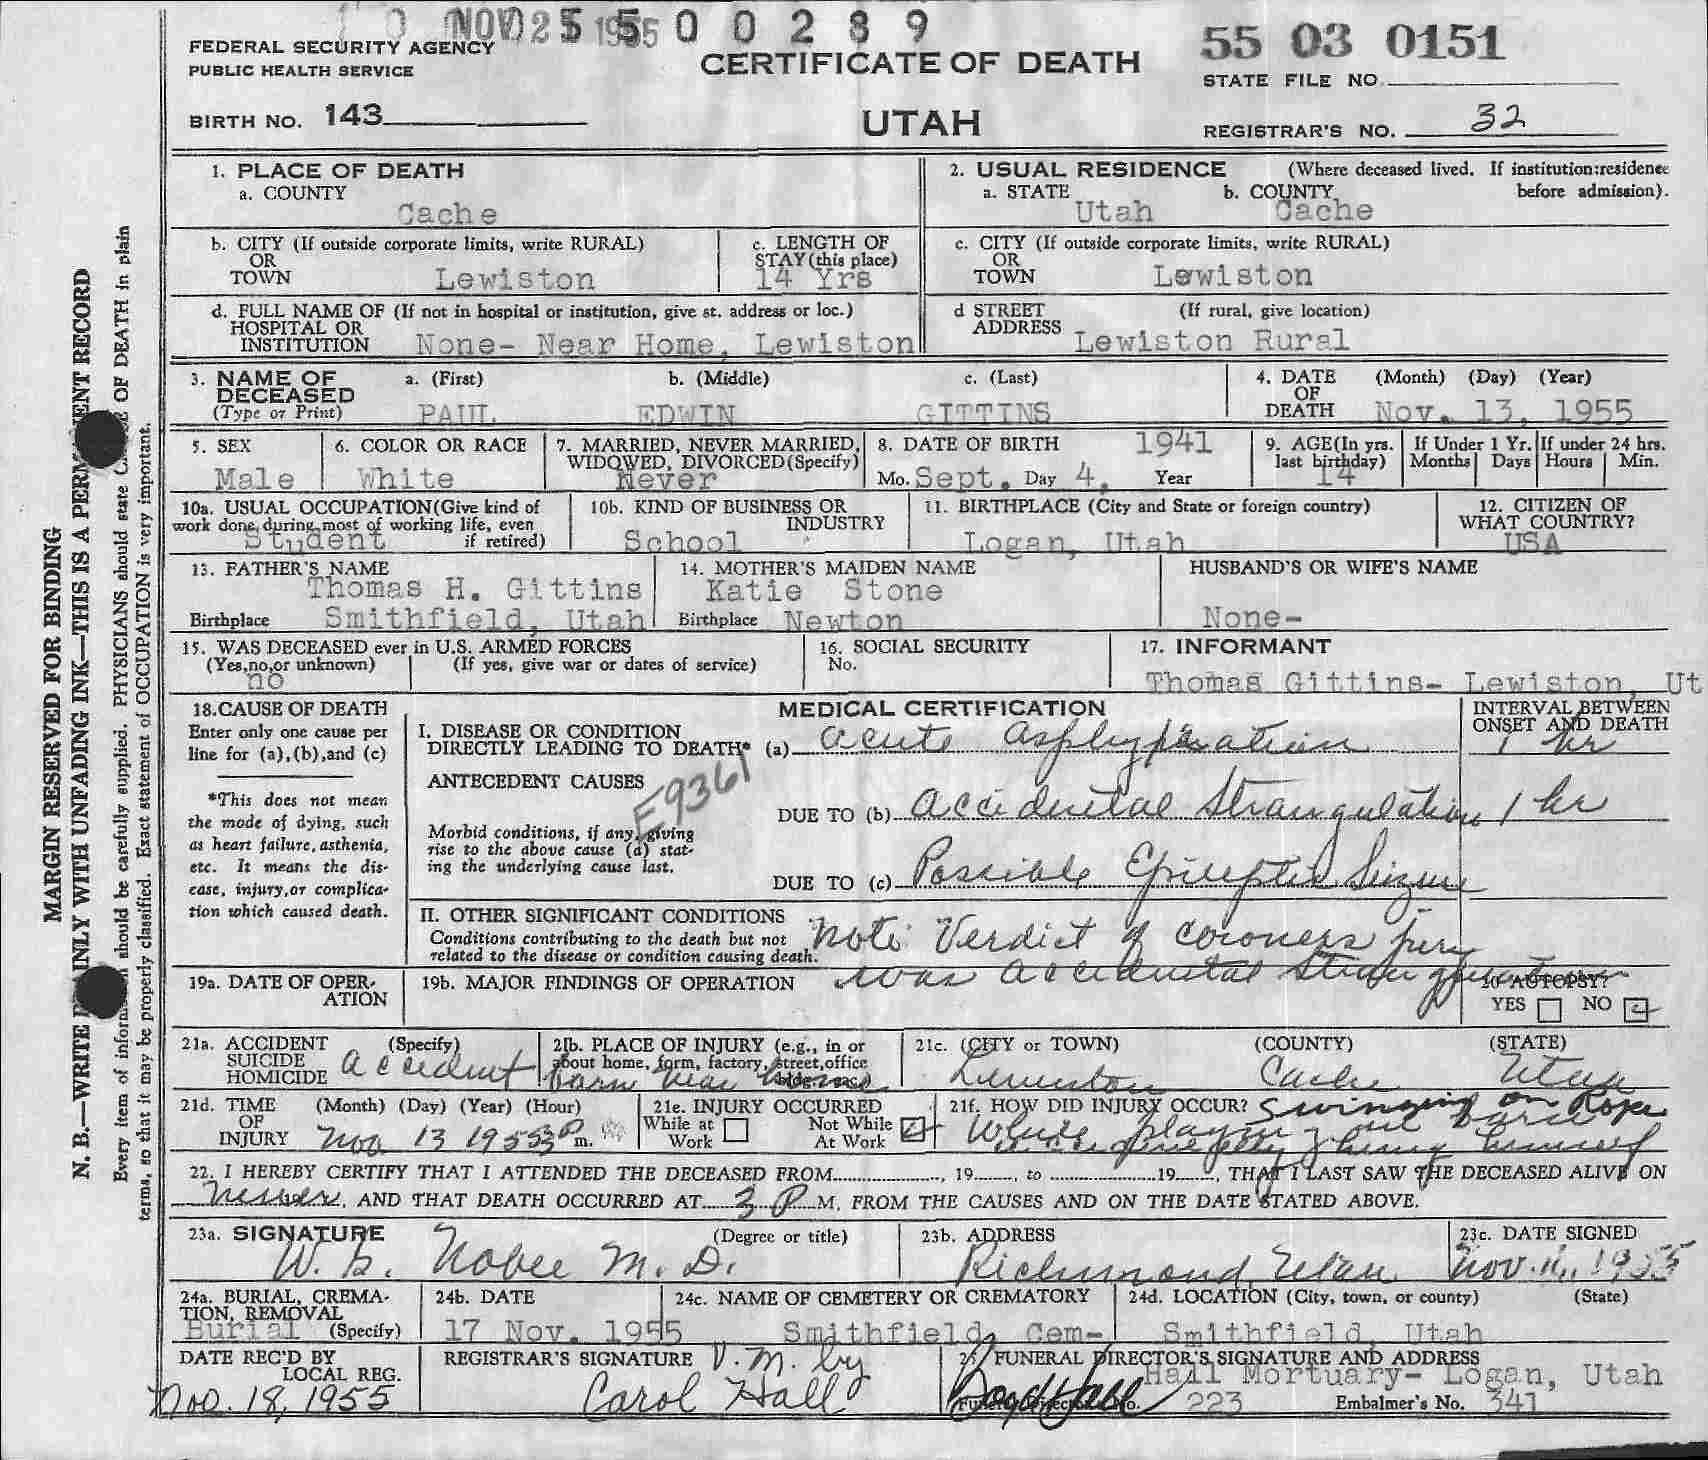 NOV 25 1955 5 0 0 2 8 9
FEDERAL SECURITY AGENCY
PUBLIC HEALTH SERVICE
CERTIFICATE OF DEATH
55 03 0151
STATE FILE NO.
BIRTH NO. 143
UTAH
REGISTRAR'S NO. 32
MARGIN RESERVED FOR BINDING
N. B.—WRITE INLY WITH UNFADING INK—THIS IS A PERM ENT RECORD
Every item of inform should be carefully supplied. PHYSICIANS should state C E OF DEATH in plain
terms, so that it may be properly classified. Exact statement of OCCUPATION is very important.
1. PLACE OF DEATH
a. COUNTY
Cache
2. USUAL RESIDENCE (Where deceased lived. If institution:residence before admission).
a. STATE Utah b. COUNTY Cache
b. CITY (If outside corporate limits, write RURAL)
OR
TOWN Lewiston
c. LENGTH OF
STAY (this place)
14 Yrs
c. CITY (If outside corporate limits, write RURAL)
OR
TOWN Lewiston
d. FULL NAME OF (If not in hospital or institution, give st. address or loc.)
HOSPITAL OR
INSTITUTION None- Near Home, Lewiston
d STREET (If rural, give location)
ADDRESS Lewiston Rural
3. NAME OF DECEASED (Type or Print)
a. (First) b. (Middle) c. (Last)
PAUL EDWIN GITTINS
4. DATE OF DEATH (Month) (Day) (Year)
Nov. 13, 1955
5. SEX
Male
6. COLOR OR RACE
White
7. MARRIED, NEVER MARRIED,
WIDOWED, DIVORCED (Specify)
Never
8. DATE OF BIRTH 1941
Mo. Sept. Day 4. Year
9. AGE (In yrs. last birthday)
14
If Under 1 Yr. Months Days
If under 24 hrs. Hours Min.
10a. USUAL OCCUPATION (Give kind of
work done during most of working life, even
if retired)
Student
10b. KIND OF BUSINESS OR
INDUSTRY
School
11. BIRTHPLACE (City and State or foreign country)
Logan, Utah
12. CITIZEN OF
WHAT COUNTRY?
USA
13. FATHER'S NAME
Thomas H. Gittins
Birthplace Smithfield, Utah
14. MOTHER'S MAIDEN NAME
Katie Stone
Birthplace Newton
HUSBAND'S OR WIFE'S NAME
None-
15. WAS DECEASED ever in U.S. ARMED FORCES
(Yes,no,or unknown) (If yes, give war or dates of service)
no
16. SOCIAL SECURITY
No.
17. INFORMANT
Thomas Gittins- Lewiston, Ut
18. CAUSE OF DEATH
Enter only one cause per
line for (a),(b),and (c)
*This does not mean
the mode of dying, such
as heart failure, asthenia,
etc. It means the dis-
ease, injury,or complica-
tion which caused death.
MEDICAL CERTIFICATION
INTERVAL BETWEEN
ONSET AND DEATH
I. DISEASE OR CONDITION
DIRECTLY LEADING TO DEATH* (a) acute asphyxiation 1 hr
ANTECEDENT CAUSES
E9361
Morbid conditions, if any, giving
rise to the above cause (a) stat-
ing the underlying cause last.
DUE TO (b) Accidental Strangulation 1 hr
DUE TO (c) Possible Epileptic Seizure
II. OTHER SIGNIFICANT CONDITIONS
Conditions contributing to the death but not
related to the disease or condition causing death.
Note Verdict of coroners jury
was accidental strangulation
19a. DATE OF OPER-
ATION
19b. MAJOR FINDINGS OF OPERATION
20 AUTOPSY?
YES NO
21a. ACCIDENT (Specify)
SUICIDE
HOMICIDE
accident
21b. PLACE OF INJURY (e.g., in or
about home, farm, factory, street, office
Barn near home
21c. (CITY or TOWN) (COUNTY) (STATE)
Lewiston Cache Utah
21d. TIME OF INJURY (Month) (Day) (Year) (Hour)
Nov 13 1955 3P m.
21e. INJURY OCCURRED
While at Work Not While At Work
21f. HOW DID INJURY OCCUR? Swinging on Rope
While playing in barn
hung himself
22. I HEREBY CERTIFY THAT I ATTENDED THE DECEASED FROM, 19, to 19, THAT I LAST SAW THE DECEASED ALIVE ON
never, AND THAT DEATH OCCURRED AT 3 P M. FROM THE CAUSES AND ON THE DATE STATED ABOVE.
23a. SIGNATURE (Degree or title)
M. D.
23b. ADDRESS
Richmond Utah
23c. DATE SIGNED
Nov. 1955
24a. BURIAL, CREMA-
TION, REMOVAL
(Specify)
Burial
24b. DATE
17 Nov. 1955
24c. NAME OF CEMETERY OR CREMATORY
Smithfield, Cem-
24d. LOCATION (City, town, or county) (State)
Smithfield, Utah
DATE REC'D BY
LOCAL REG.
Nov. 18, 1955
REGISTRAR'S SIGNATURE V. M. by
Carol Hall
25 FUNERAL DIRECTOR'S SIGNATURE AND ADDRESS
Hall Mortuary- Logan, Utah
223 Embalmer's No. 341